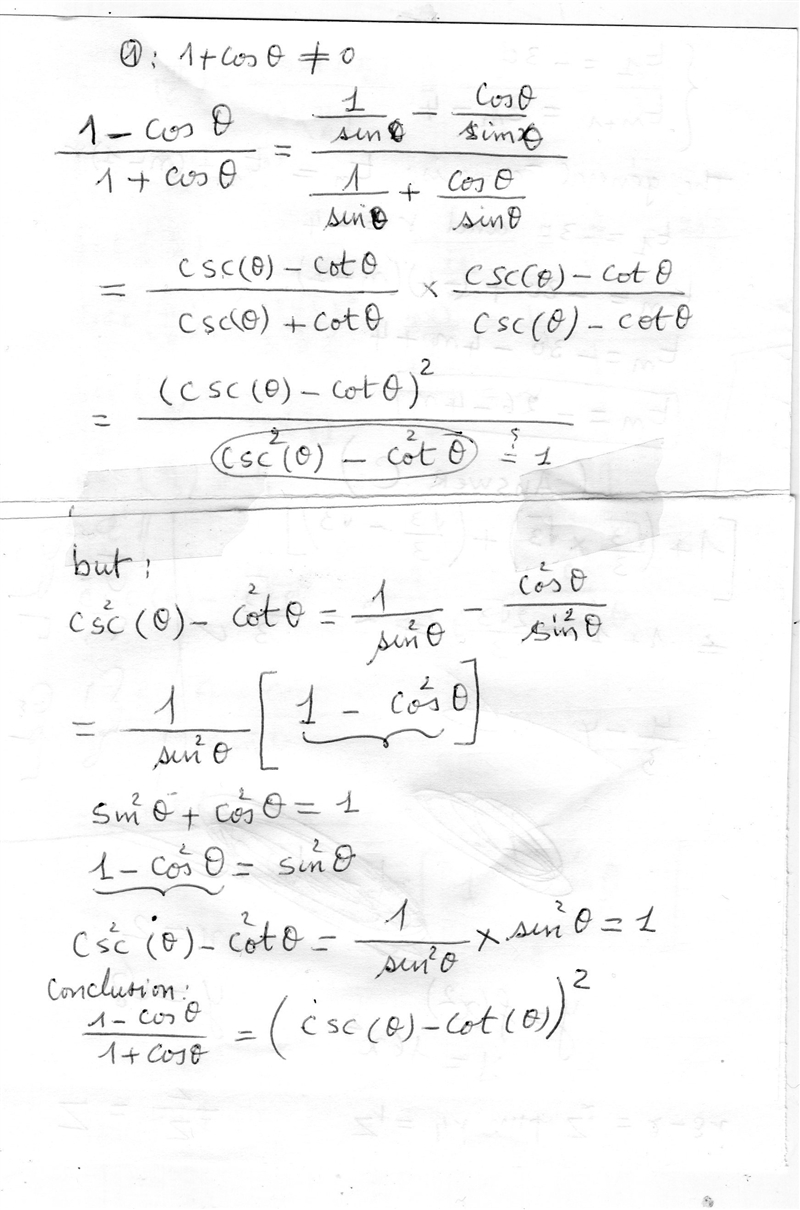 ①: 1+cosθ ≠ 0
(1 - cosθ)/(1 + cosθ) = (1/sinθ - cosθ/sinθ)/(1/sinθ + cosθ/sinθ)
= (csc(θ) - cotθ)/(csc(θ) + cotθ) × (csc(θ) - cotθ)/(csc(θ) - cotθ)
= (csc(θ) - cotθ)²/(csc²(θ) - cot²θ) ≟ 1
but:
csc²(θ) - cot²θ = 1/sin²θ - cos²θ/sin²θ
= 1/sin²θ [1 - cos²θ]
sin²θ + cos²θ = 1
1 - cos²θ = sin²θ
csc²(θ) - cot²θ = 1/sin²θ × sin²θ = 1
Conclusion:
(1 - cosθ)/(1 + cosθ) = (csc(θ) - cot(θ))²